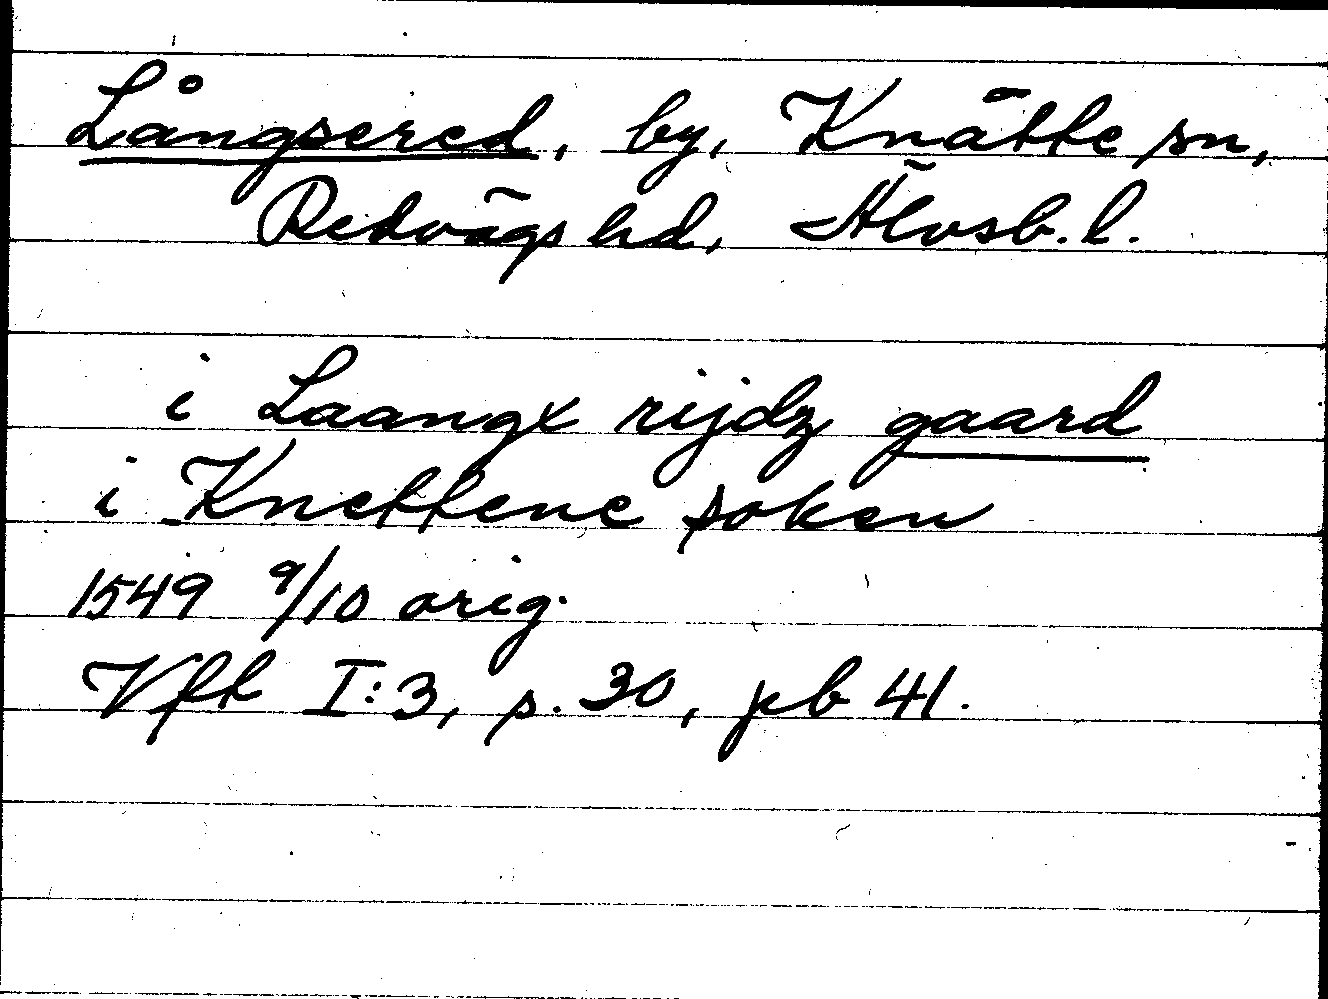 Långsered, by, Knätte sn,
Redvägs hd, Älvsb. l.
i Laangx rijdz gaard
i Knettene soken
1549 9/10 orig.
Vfl I:3, s. 30, jb 41.